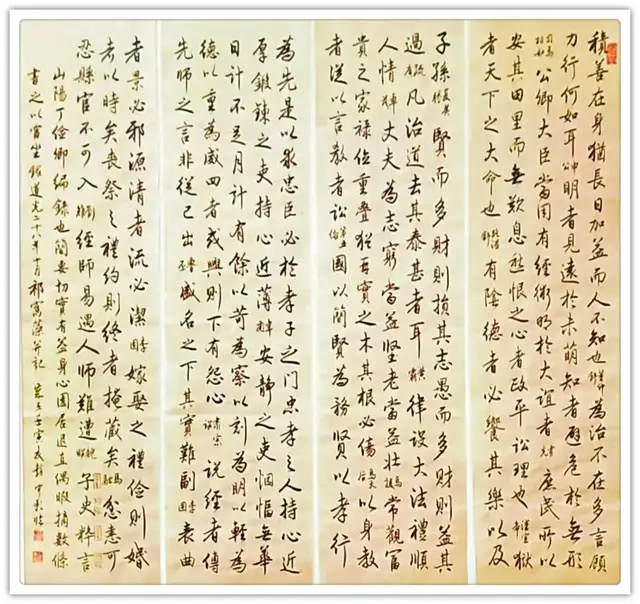 積善在身猶長日加益而人不知也為治不在多言顧
力行何如耳申明者見遠於未萌知者避危於無形
司馬相如公卿大臣當用有經術明於大誼者庶民所以
安其田里而無歎息愁恨之心者政平訟理也漢宣帝獄
者天下之大命也路溫舒有陰德者必饗其樂以及
子孫夏侯賢而多財則損其志愚而多財則益其
過疏廣凡治道去其泰甚者耳黃霸律設大法禮順
人情卓茂丈夫為志窮當益堅老當益壯馬援常觀富
貴之家祿位重疊猶再實之木其根必傷馬后以身教
者從以言教者訟第五倫國以簡賢為務賢以孝行
為先是以求忠臣必於孝子之門忠孝之人持心近
厚鍛鍊之吏持心近薄韋彪安靜之吏悃愊無華
日計不足月計有餘以苛為察以刻為明以輕為
德以重為威四者或興則下有怨心肅宗說經者傳
先師之言非從己出魯丕盛名之下其實難副李固表曲
者景必邪源清者流必潔李固嫁娶之禮儉則婚
者以時矣喪祭之禮約則終者掩藏矣馬融忿恚可
忍縣官不可入經師易遇人師難遭魏昭子史粹言
山陽丁儉卿編錄也簡要切實有益身心園居退直偶暇摘數條
書之以當坐銘道光二十八年十月祁寯藻并記